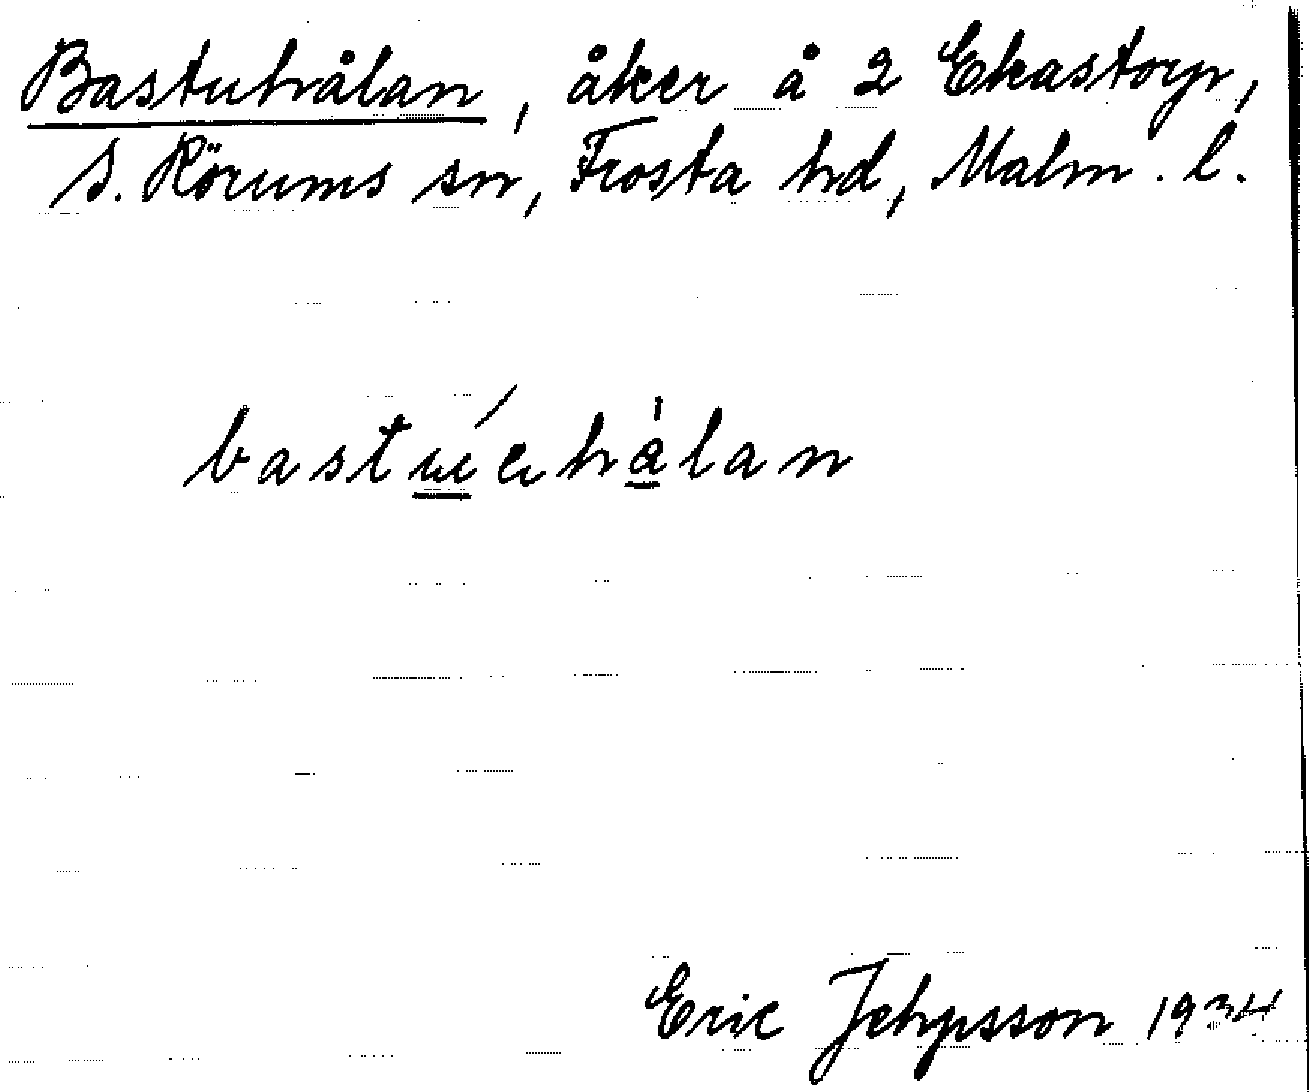 Bastuhålan, åker å 2 Ekastorp,
S. Rörums sn, Frosta hd, Malm. l.
Eric Jehpsson 1934